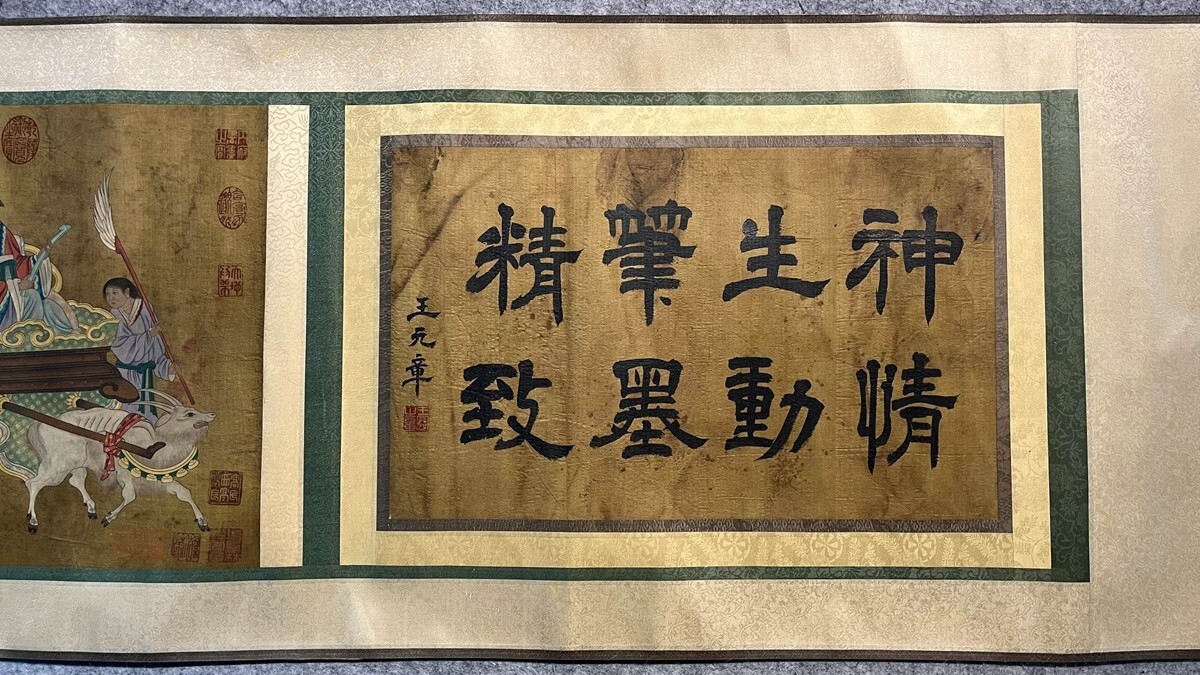 神情
生動
筆墨
精致
王元章